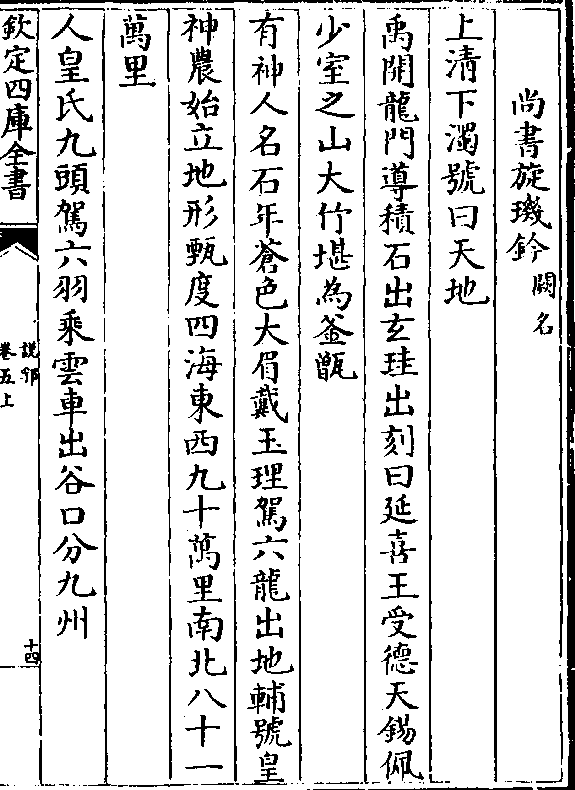 尚書旋璣鈐 闕名
上清下濁號曰天地
禹開龍門導積石出玄珪出刻曰延喜王受德天錫佩
少室之山大竹堪為釜甑
有神人名石年蒼色大眉戴玉理駕六龍出地輔號皇
神農始立地形甄度四海東西九十萬里南北八十一
萬里
人皇氏九頭駕六羽乘雲車出谷口分九州
欽定四庫全書
說郛
卷五上
十四